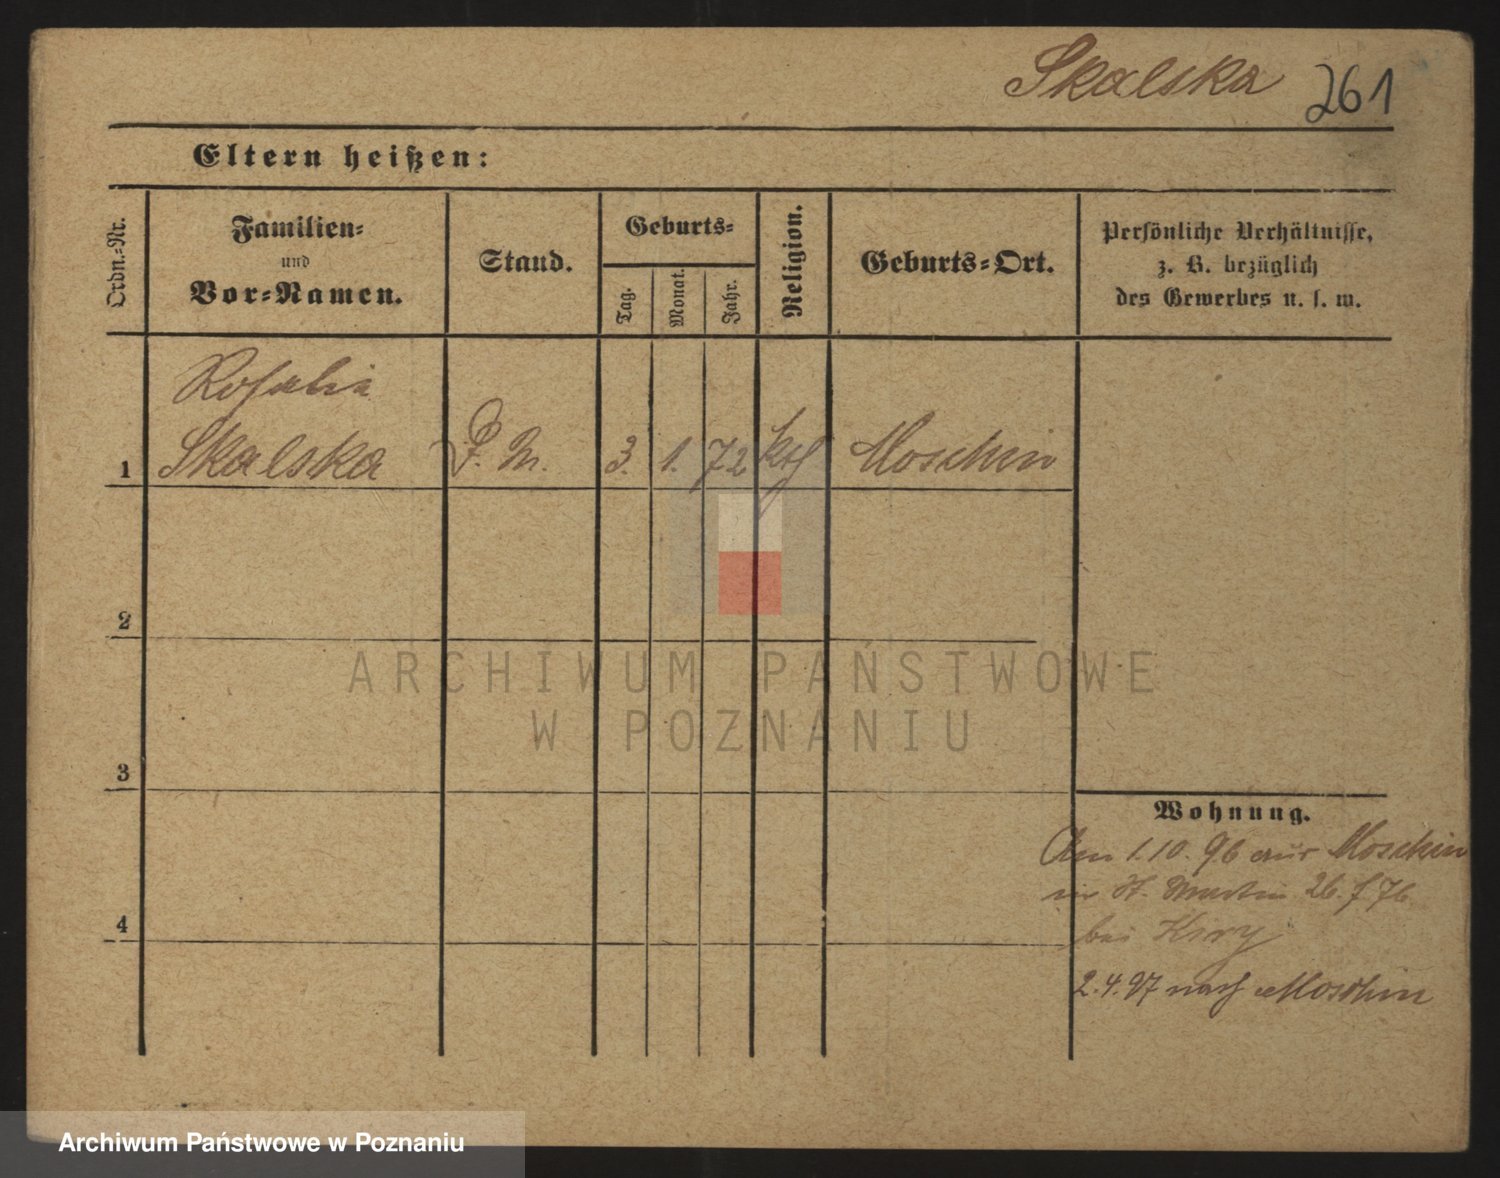 Skalska 261
Eltern heißen:
Ordn.-Nr.
Familien-
und
Vor-Namen.
Stand.
Geburts-
Tag.
Monat.
Jahr.
Religion.
Geburts-Ort.
Persönliche Verhältnisse,
z. B. bezüglich
des Gewerbes u. s. w.
Rosalia
1 Skalska P. M. 3. 1. 72 kth Moschin
2
3
4
ARCHIWUM PAŃSTWOWE
W POZNANIU
Wohnung.
Am 1.10.96 aus Moschin
St. Martin 26
bei
2.4.97 nach Moschin
Archiwum Państwowe w Poznaniu